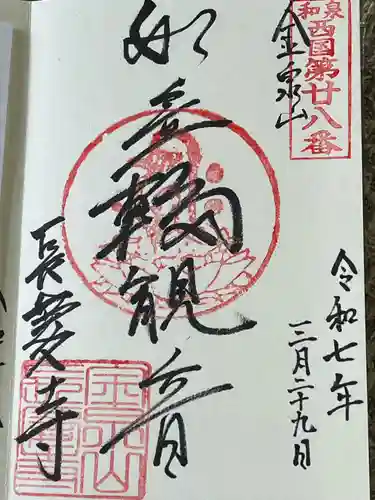 和泉
西国第廿八番
金泉山
令和七年
三月二十九日
如意輪観音
長慶寺